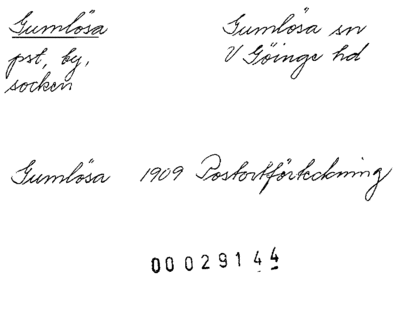 Gumlösa
pst, by,
socken
Gumlösa sn
V Göinge hd
Gumlösa 1909 Postortförteckning
00029144